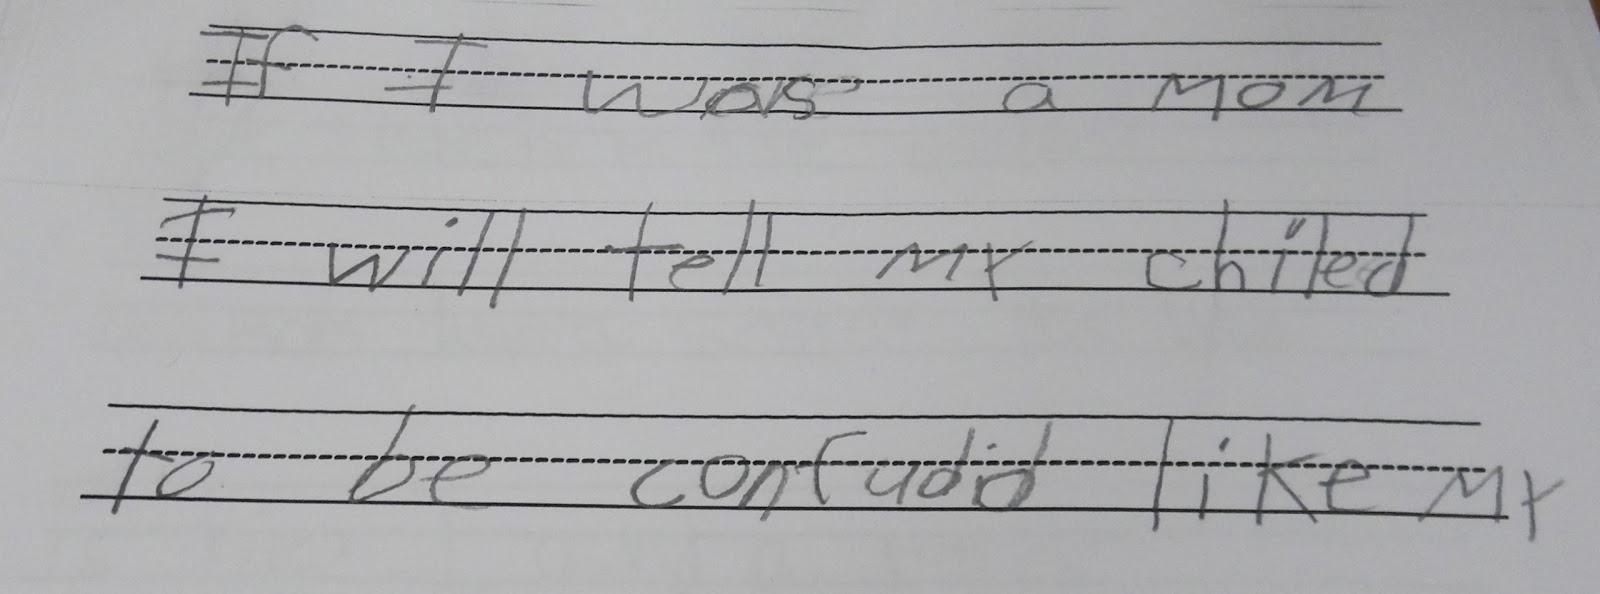 If I was a mom
I will tell my chiled
to be confudid like my